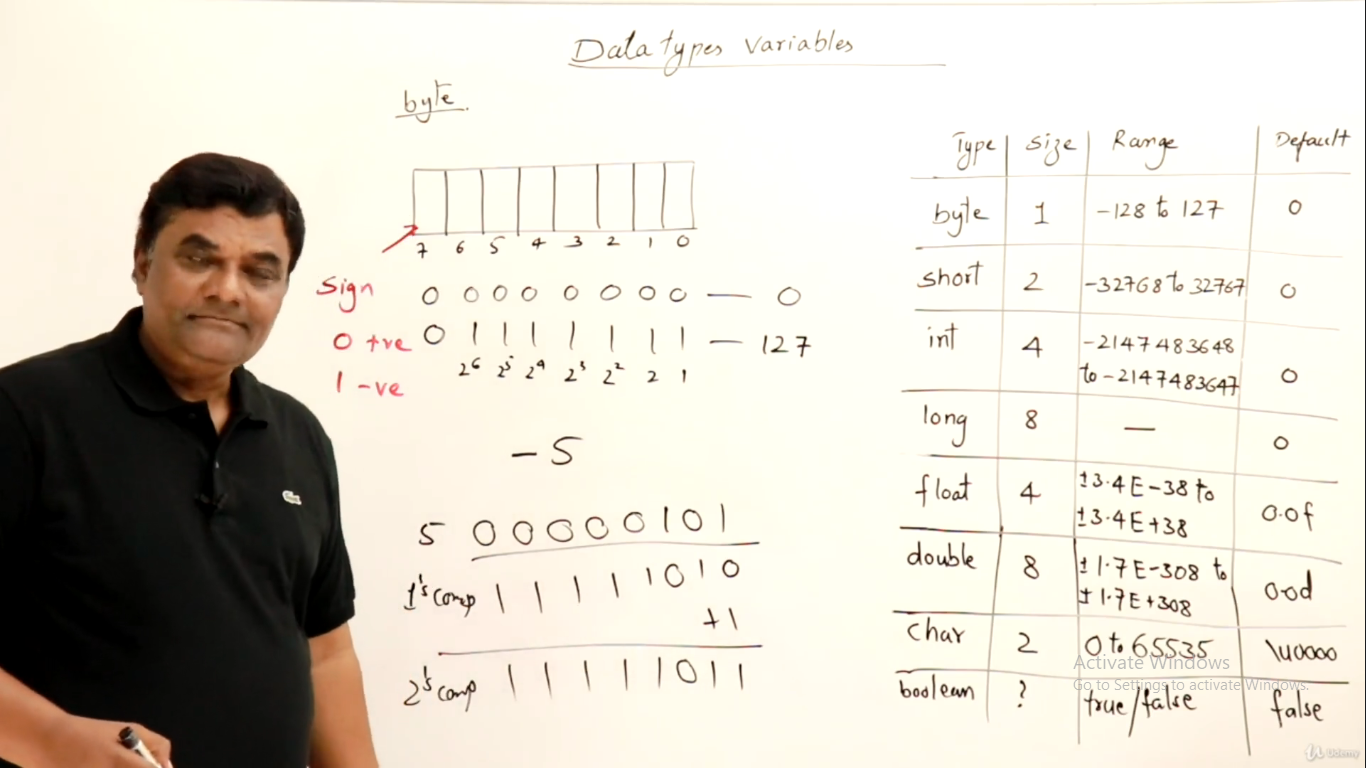 Data types Variables
byte
7 6 5 4 3 2 1 0
Sign 0 0 0 0 0 0 0 0 — 0
0 +ve 0 1 1 1 1 1 1 1 — 127
2⁶ 2⁵ 2⁴ 2³ 2² 2 1
1 -ve
-5
5 0 0 0 0 0 1 0 1
1's comp 1 1 1 1 1 0 1 0
+1
2's comp 1 1 1 1 1 0 1 1
Type Size Range Default
byte 1 -128 to 127 0
short 2 -32768 to 32767 0
int 4 -2147483648
to -2147483647 0
long 8 — 0
float 4 ±3.4E-38 to
±3.4E+38 0.0f
double 8 ±1.7E-308 to
±1.7E+308 0.0d
char 2 0 to 65535 \u0000
boolean ? true/false false
Activate Windows
Go to Settings to activate Windows.
Udemy